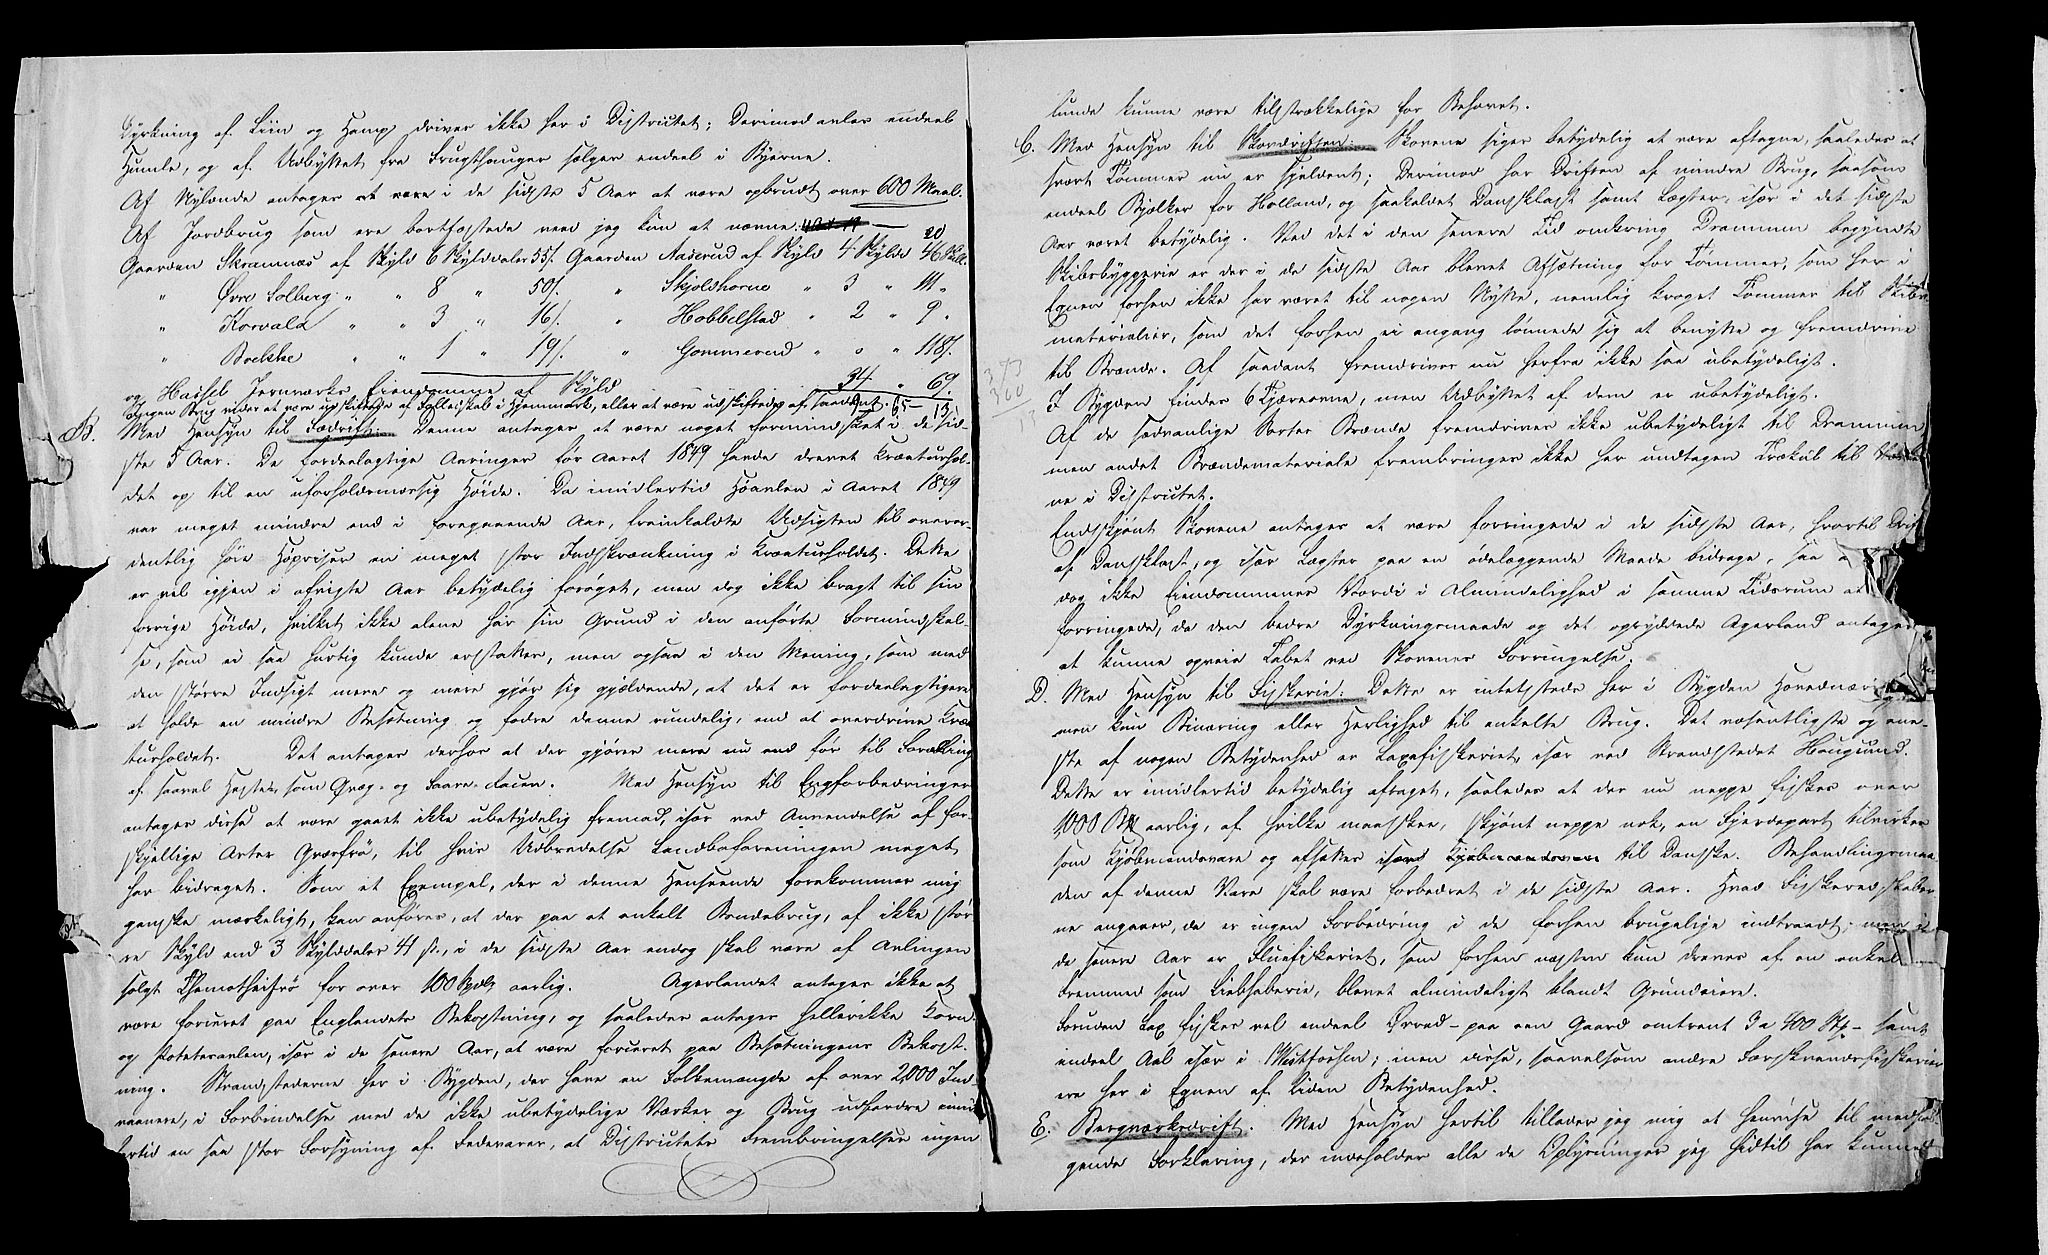 Dyrkning af Liin og Hamp drives ikke her i Distriktet; Derimod avles endeel
Humle, og af Udbyttet fra Frugthauger sælges endeel i Byerne.
Af Nylænde antages at være i de sidste 5 Aar at være opbrudt over 600 Maal.
Af Jordbrug som ere bortfæstede veed jeg kun at nævne:
Gaarden Skramnæs af Skyld 6 Skylddaler 55/. Gaarden Aaserud af Skyld 4 Skyldd 20
" Øvre Solberg " " 8 " 50/. " Skjoldhorne " 3 " 111 "
" Korvald " " 3 " 16/. " Hobbelstad " 2 " 9 "
" Brekke " " 1 " 19/. " Gommerud " " " 118/.
og Hassel Jernværks Eiendomme af Skyld 34 " 69.
Ingen Brug vides at være udskiftede af Fælledskab i Hjemmark, eller at være udskiftede af saadant. 65 - 13
B. Med Hensyn til Fædrift: Denne antages at være noget formindsket i de sid-
ste 5 Aar. De fordeelagtige Aaringer før Aaret 1849 havde drevet Kreaturhol-
det op til en uforholdsmæssig Høide. Da imidlertid Høavlen i Aaret 1849
var meget mindre end i foregaaende Aar, fremkaldte Udsigten til overor-
dentlig høie Høpriser en meget stor Indskrænkning i Kreaturholdet. Dette
er vel igjen i afvigte Aar betydelig forøget, men dog ikke bragt til sin
forrige Høide, hvilket ikke alene har sin Grund i den anførte Formindskel-
se, som ei saa hurtig kunde erstattes, men ogsaa i den Mening, som med
den større Indsigt mere og mere gjør sig gjældende, at det er fordeelagtigere
at holde en mindre Besætning og fodre denne rundelig, end at overdrive Krea-
turholdet. Det antages derfor at der gjøres mere nu end før til Forædling
af saavel Heste, som Qvæg- og Faare-Racen. Med Hensyn til Engforbedringer
antages disse at være gaaet ikke ubetydelig fremad, især ved Anvendelse af for-
skjellige Arter Græsfrø, til hvis Udbredelse Landboforeningen meget
har bidraget. Som et Exempel, der i denne Henseende forekommer mig
ganske mærkeligt, kan anføres, at der paa et enkelt Bondebrug, af ikke stør-
re Skyld end 3 Skylddaler 41 ss, i de sidste Aar endog skal være af Avlingen
solgt Thimotheifrø for over 100 Spdlr aarlig. Agerlandet antages ikke at
være forceret paa Englandets Bekostning, og saaledes antages hellerikke Korn-
og Potetesavlen, især i de senere Aar, at være forceret paa Besætningens Bekost-
ning. Strandstederne her i Bygden, der have en Folkemængde af over 2,000 Ind-
vaanere, i Forbindelse med de ikke ubetydelige Værker og Brug udfordre imid-
lertid en saa stor Forsyning af Fedevarer, at Distriktets Frembringelser ingen
lunde kunne være tilstrækkelige for Behovet.
C. Med Hensyn til Skovdriften: Skovene siges betydelig at være aftagne, saaledes at
svært Tømmer nu er sjeldent; Derimod har Driften af mindre Brug, saasom
endeel Bjelker for Holland, og saakaldet Dansklast samt Lægter, især i det sidste
Aar været betydelig. Ved det i den senere Tid omkring Drammen begyndte
Skibsbyggerie er der i de sidste Aar blevet Afsætning for Tømmer, som her i
Egnen forhen ikke har været til nogen Nytte, nemlig kroget Tømmer til Skibs-
materialier, som det forhen ei engang lønnede sig at benytte og fremdrive
til Brænde. Af saadant fremdrives nu herfra ikke saa ubetydeligt.
I Bygden findes 6 Tjæreovne, men Udbyttet af dem er ubetydeligt.
Af de sædvanlige Sorter Brænde fremdrives ikke ubetydeligt til Drammen
men andet Brændemateriale frembringes ikke her undtagen Trækul til Værker-
ne i Distriktet.
Endskjønt Skovene antages at være forringede i de sidste Aar, hvortil Drift
af Dansklast, og især Lægter paa en ødelæggende Maade bidrage, saa a
dog ikke Eiendommenes Værdi i Almindelighed i samme Tidsrum at
forringede, da den bedre Dyrkningsmaade og det opryddede Agerland antages
at kunne opveie Tabet ved Skovenes Forringelse.
D. Med Hensyn til Fiskerie: Dette er intetsteds her i Bygden Hovednæri
men kun Binæring eller Herlighed til enkelte Brug. Det væsentligste og ene-
ste af nogen Betydenhed er Laxefiskeriet, især ved Strandstedet Hougsund.
Dette er imidlertid betydelig aftaget, saaledes at der nu neppe fiskes over
1,000 B aarlig, af hvilke maaskee, skjønt neppe nok, en Fjerdepart tilvirkes
som Kjøbmandsvare og afsættes til Danske. Behandlingsmaa-
den af denne Vare skal være forbedret i de sidste Aar. Hvad Fiskeredskaber-
ne angaaer, da er ingen Forbedring i de forhen brugelige indtraadt; men i
de senere Aar er Fluefiskeriet, som forhen næsten kun dreves af en enkelt
Fremmed som Liebhaberie, blevet almindeligt blandt Grundeiere.
Foruden Lax fiskes vel endeel Ørred - paa een Gaard omtrent 3 a 400 Stk - samt
endeel Aal især i Vestfossen; men disse, saavelsom andre Færskvandsfiskerier
ere her i Egnen af liden Betydenhed.
E. Bergværksdrift. Med Hensyn hertil tillader jeg mig at henvise til medføl-
gende Forklaring, der indeholder alle de Oplysninger jeg hidtil har kunnet